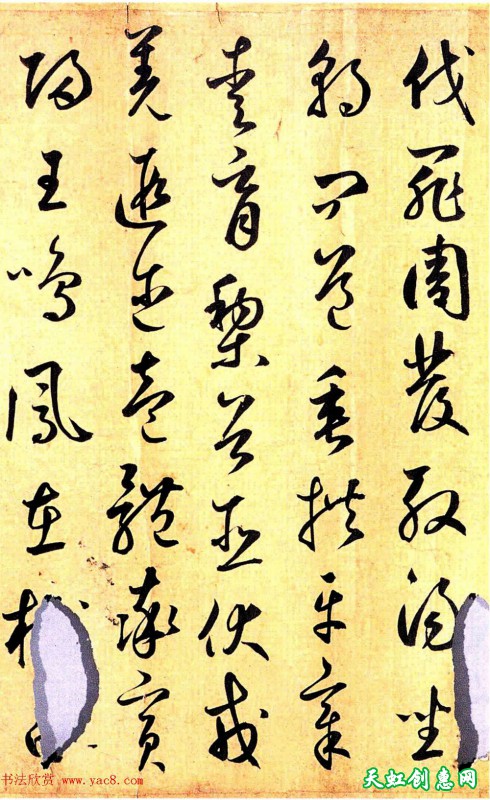 伐罪周發殷湯坐
朝問道垂拱平章
愛育黎首臣伏戎
羌遐邇壹體率賓
歸王鳴鳳在樹
书法欣赏 www.yac8.com
天虹创惠网